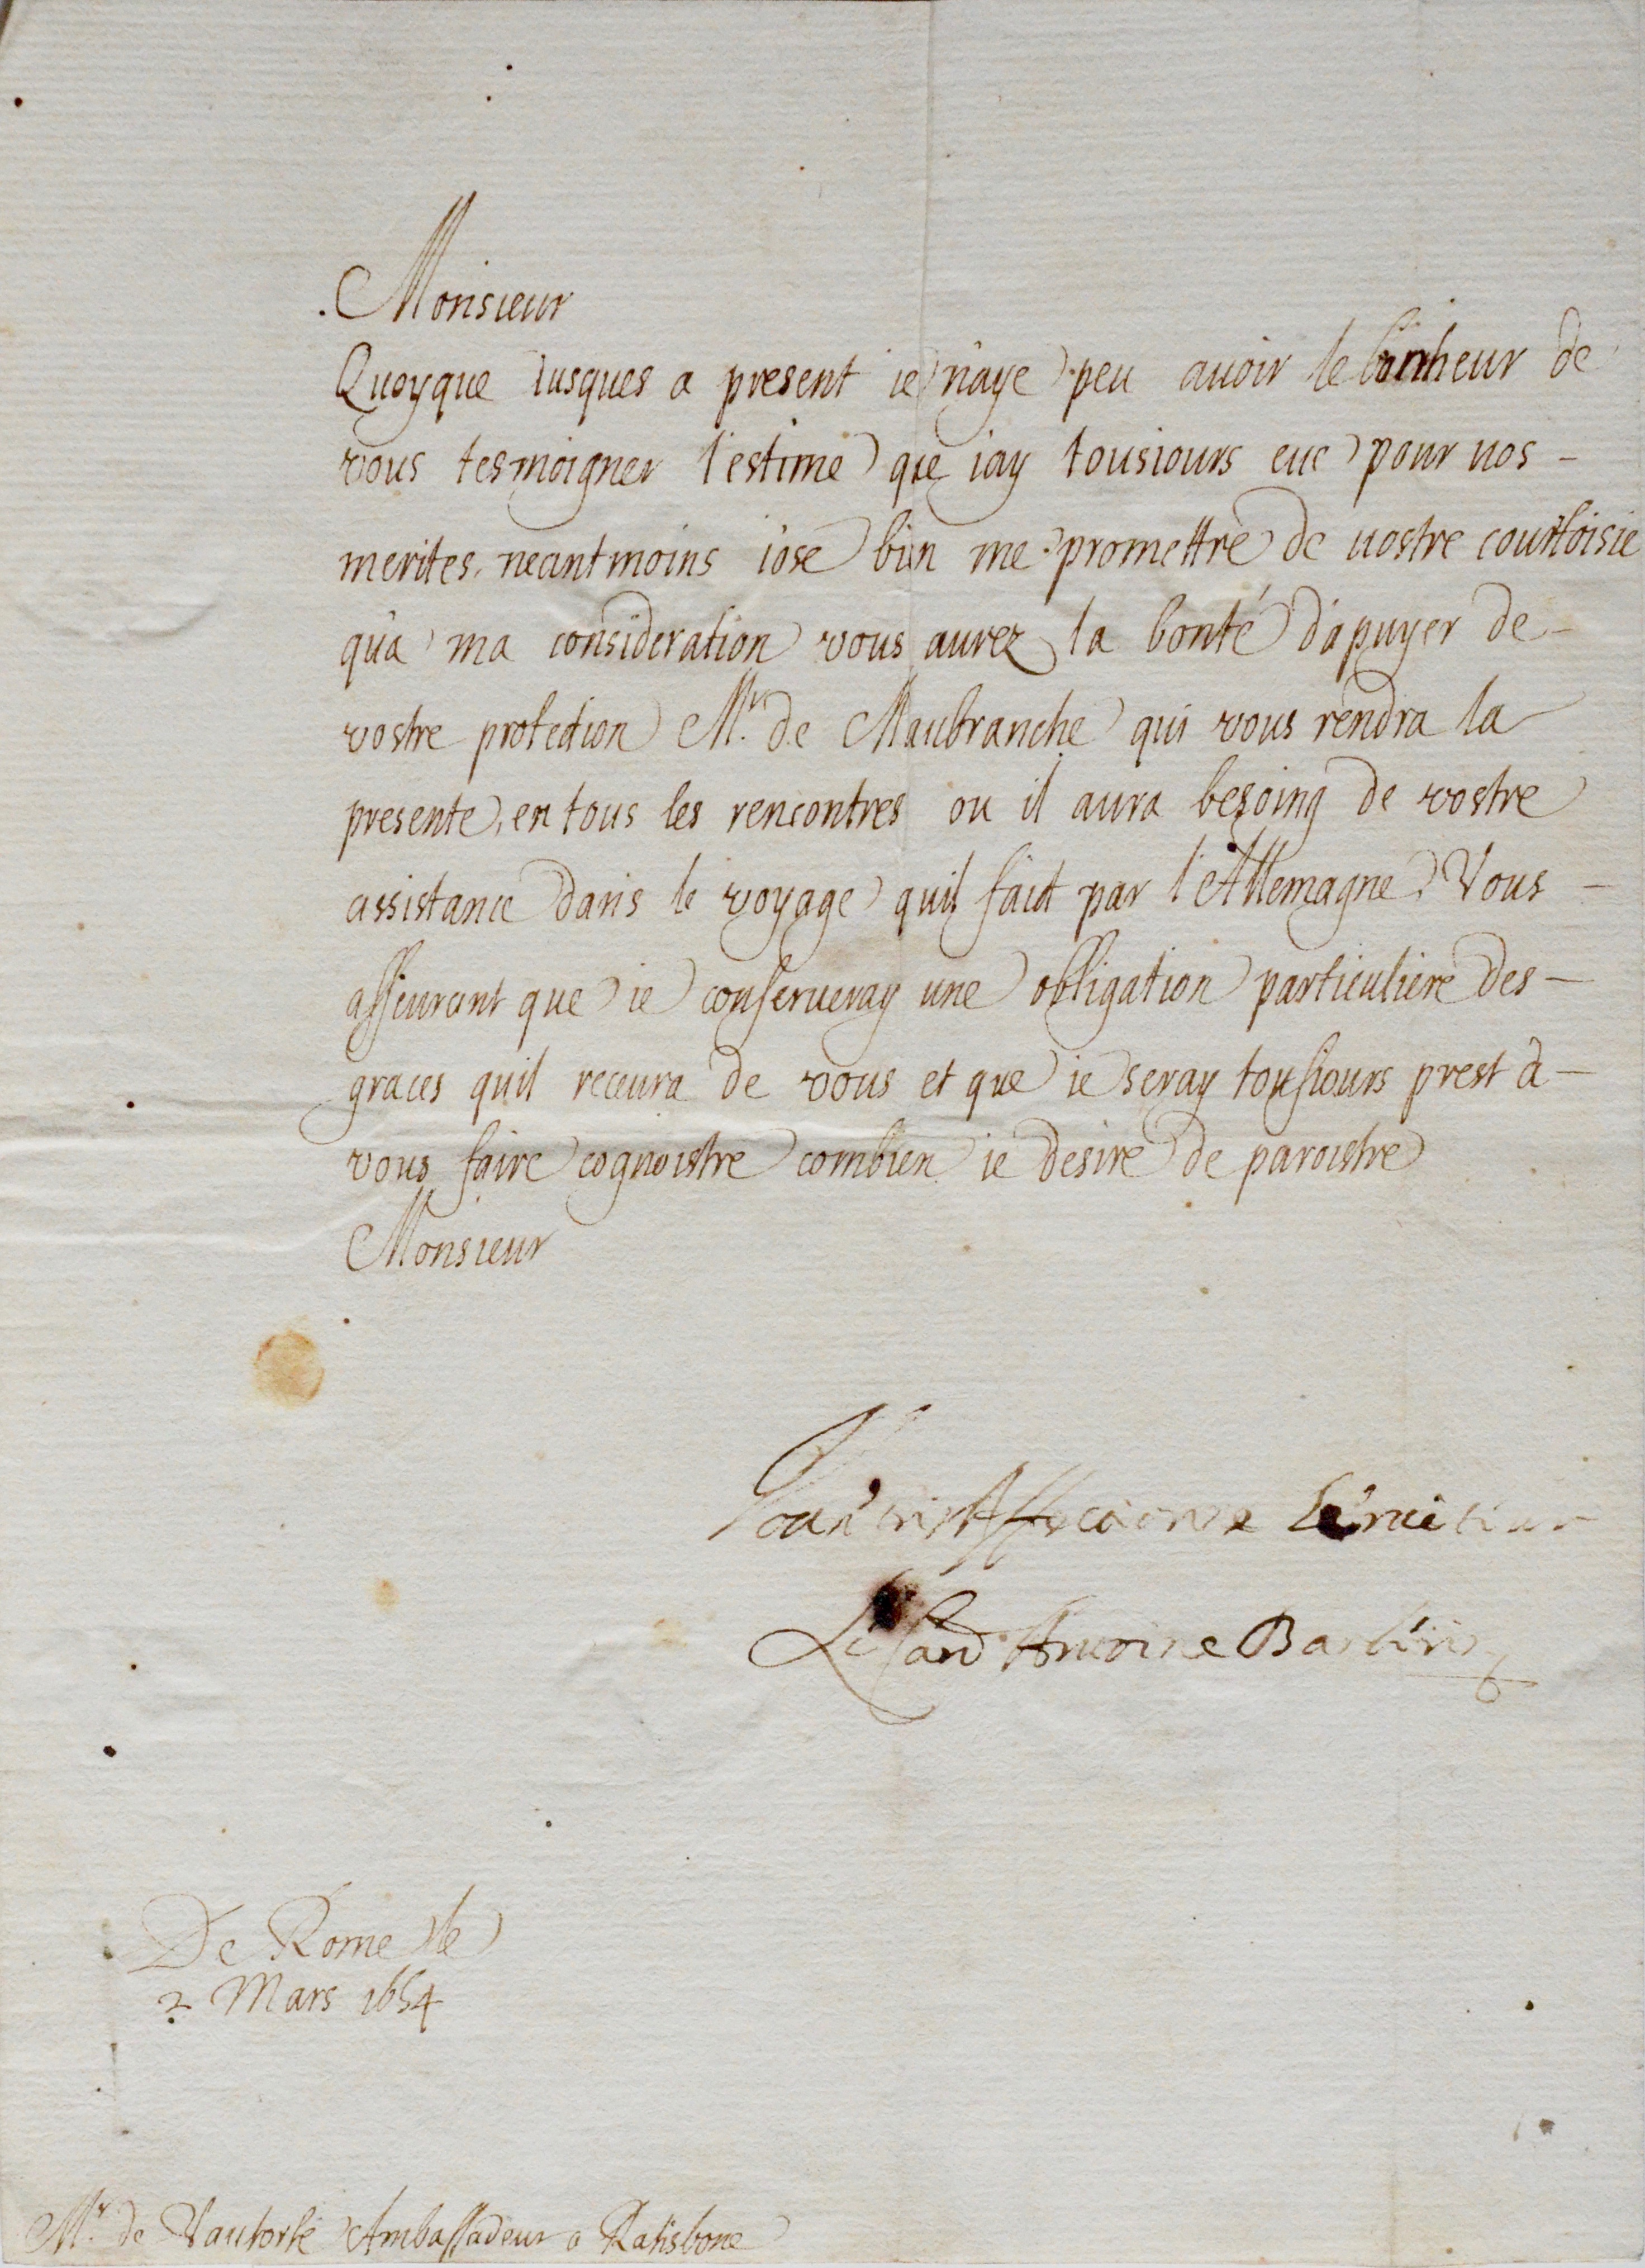 Monsieur
Quoyque iusques a present ie n'aye peu auoir le bonheur de
vous tesmoigner l'estime que i'ay tousiours eue pour uos -
merites. neantmoins i'ose bien me promettre de uostre courtoisie
qu'a ma consideration vous aurez la bonté d'apuyer de -
vostre protection Mr. de Maubranche qui vous rendra la
presente, en tous les rencontres ou il aura besoing de vostre
assistance dans le voyage quil faict par l'Allemagne. Vous -
asseurant que ie conserueray une obligation particuliere des -
graces quil receura de vous et que ie seray tousiours prest à -
vous faire cognoistre combien ie desire de paroistre
Monsieur
Affecionne seruiteur
Le Card. Antoine Barberin
De Rome le
2 Mars 1654
Mr. de Vautorte Ambassadeur a Ratisbone